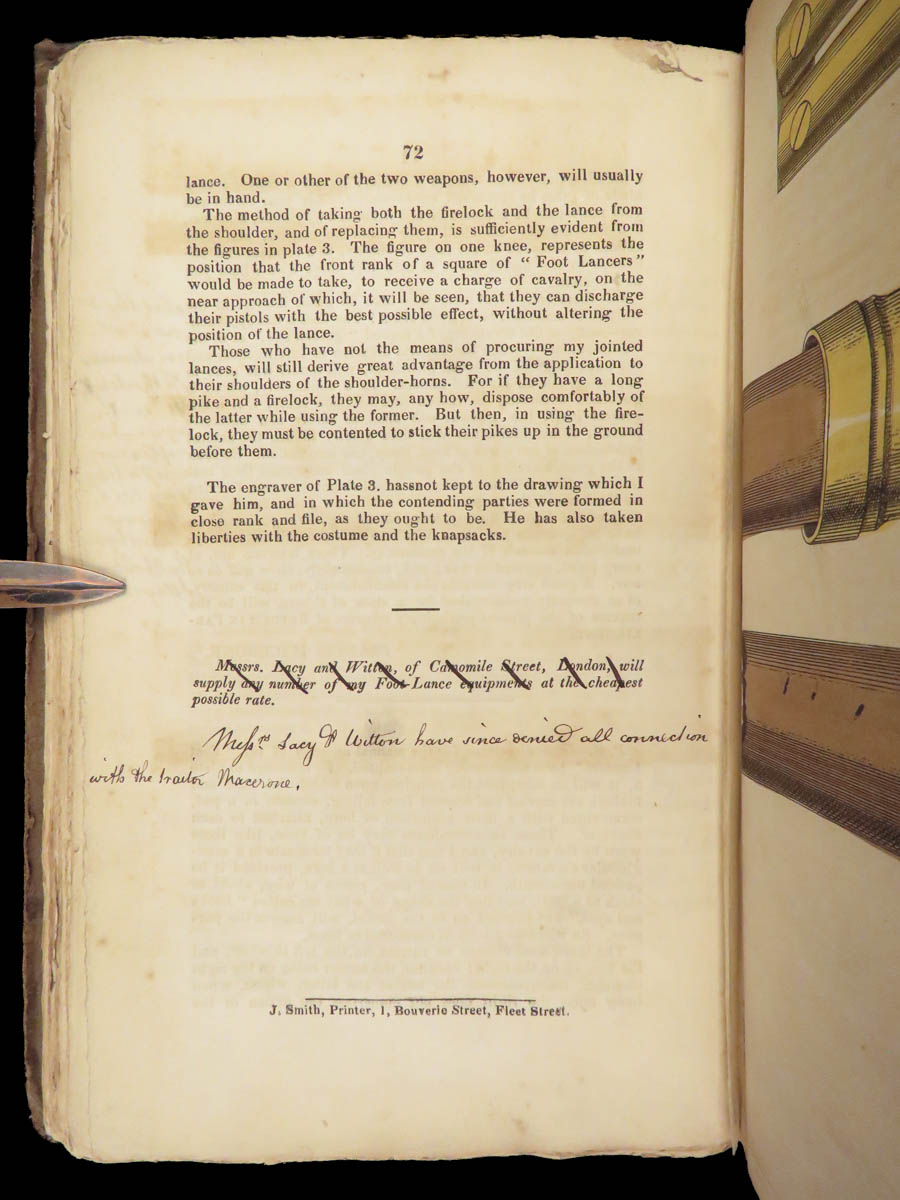 72
lance. One or other of the two weapons, however, will usually
be in hand.
The method of taking both the firelock and the lance from
the shoulder, and of replacing them, is sufficiently evident from
the figures in plate 3. The figure on one knee, represents the
position that the front rank of a square of “ Foot Lancers ”
would be made to take, to receive a charge of cavalry, on the
near approach of which, it will be seen, that they can discharge
their pistols with the best possible effect, without altering the
position of the lance.
Those who have not the means of procuring my jointed
lances, will still derive great advantage from the application to
their shoulders of the shoulder-horns. For if they have a long
pike and a firelock, they may, any how, dispose comfortably of
the latter while using the former. But then, in using the fire-
lock, they must be contented to stick their pikes up in the ground
before them.
The engraver of Plate 3. hassnot kept to the drawing which I
gave him, and in which the contending parties were formed in
close rank and file, as they ought to be. He has also taken
liberties with the costume and the knapsacks.
Messrs. Lacy and Witton, of Camomile Street, London, will
supply any number of my Foot-Lance equipments at the cheapest
possible rate.
Messrs Lacy & Witton have since denied all connection
with the traitor Macerone.
J. Smith, Printer, 1, Bouverie Street, Fleet Street.